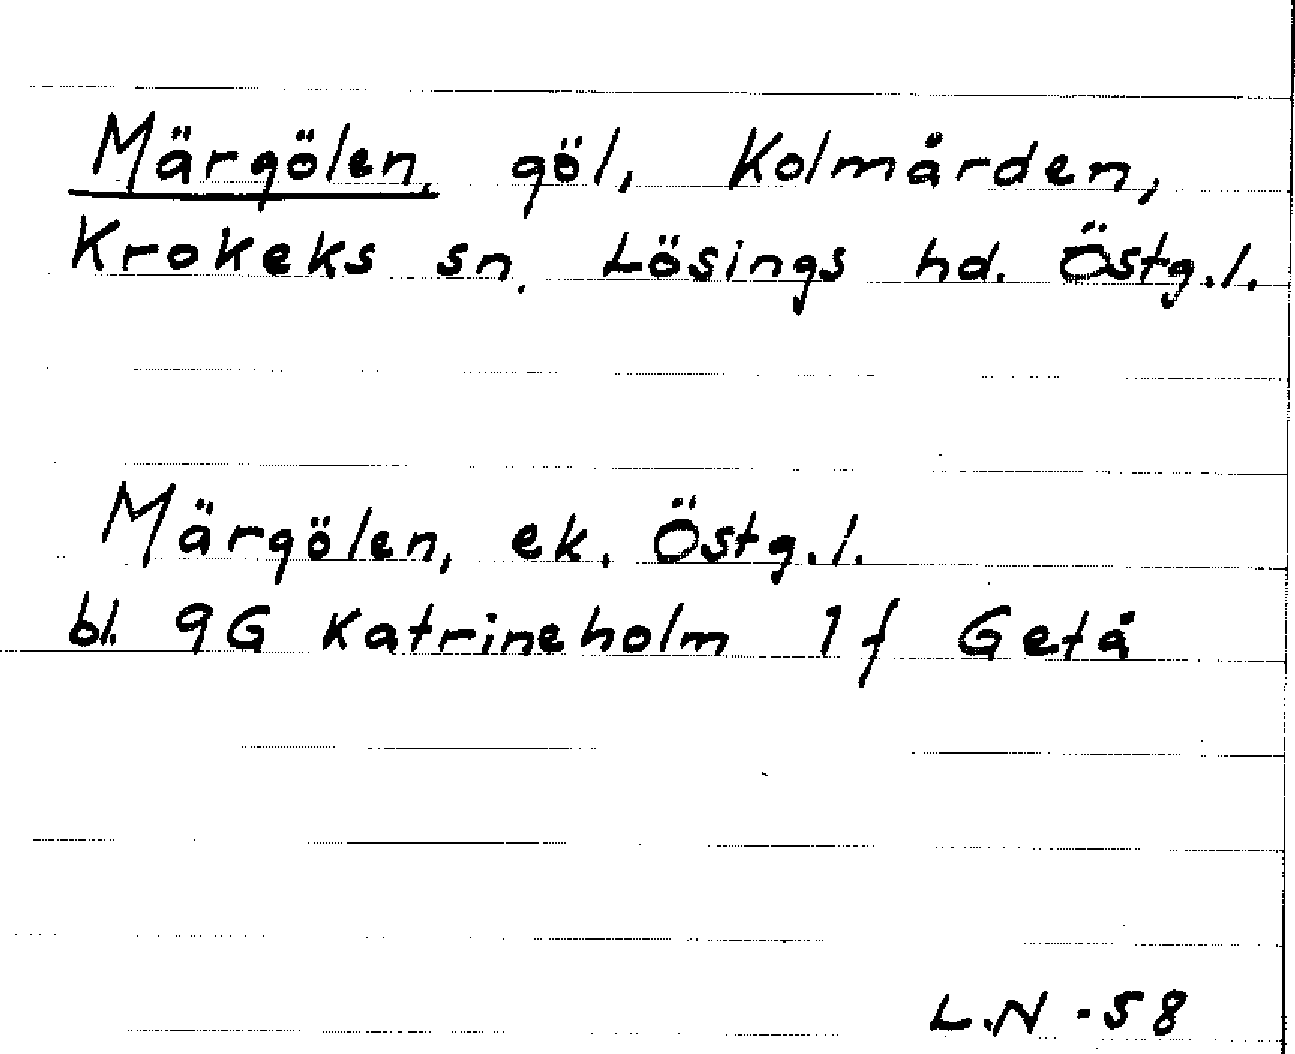 Märgölen, göl, Kolmården,
Krokeks sn. Lösings hd. Östg.l.
Märgölen, ek. Östg.l.
bl. 9G Katrineholm 1f Getå
L.N -58